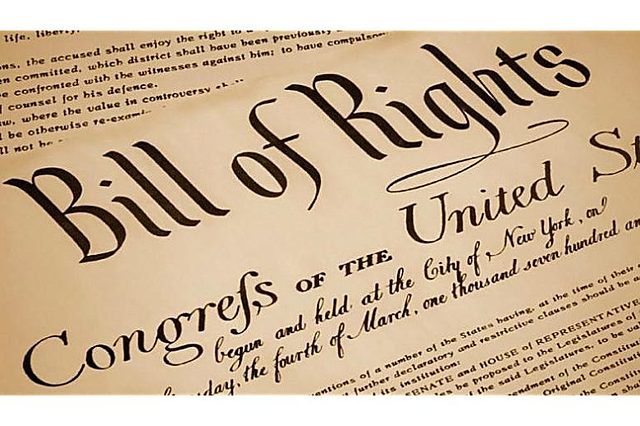 life, liberty,
ns, the accused shall enjoy the right to
en committed, which district shall have been previously
be confronted with the witnesses against him; to have compulso
f counsel for his defence.
w, where the value in controversy sh
be otherwise re-exami
ll not be
Bill of Rights
Congreſs OF THE United St
begun and held at the City of New York, on
day, the fourth of March, one thousand seven hundred an
entions of a number of the States having, at the time of their
further declaratory and restrictive clauses should be a
its institution:
SENATE and HOUSE of REPRESENTATIVE
be proposed to the Legislatures of
the said Legislatures, to be
endment of the Constitu
Original Constitut
the Constitu